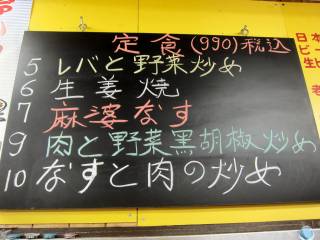 定食(990)税込
5 レバと野菜炒め
6 生姜焼
7 麻婆なす
9 肉と野菜黒胡椒炒め
10 なすと肉の炒め
日本
ビー
生ビ